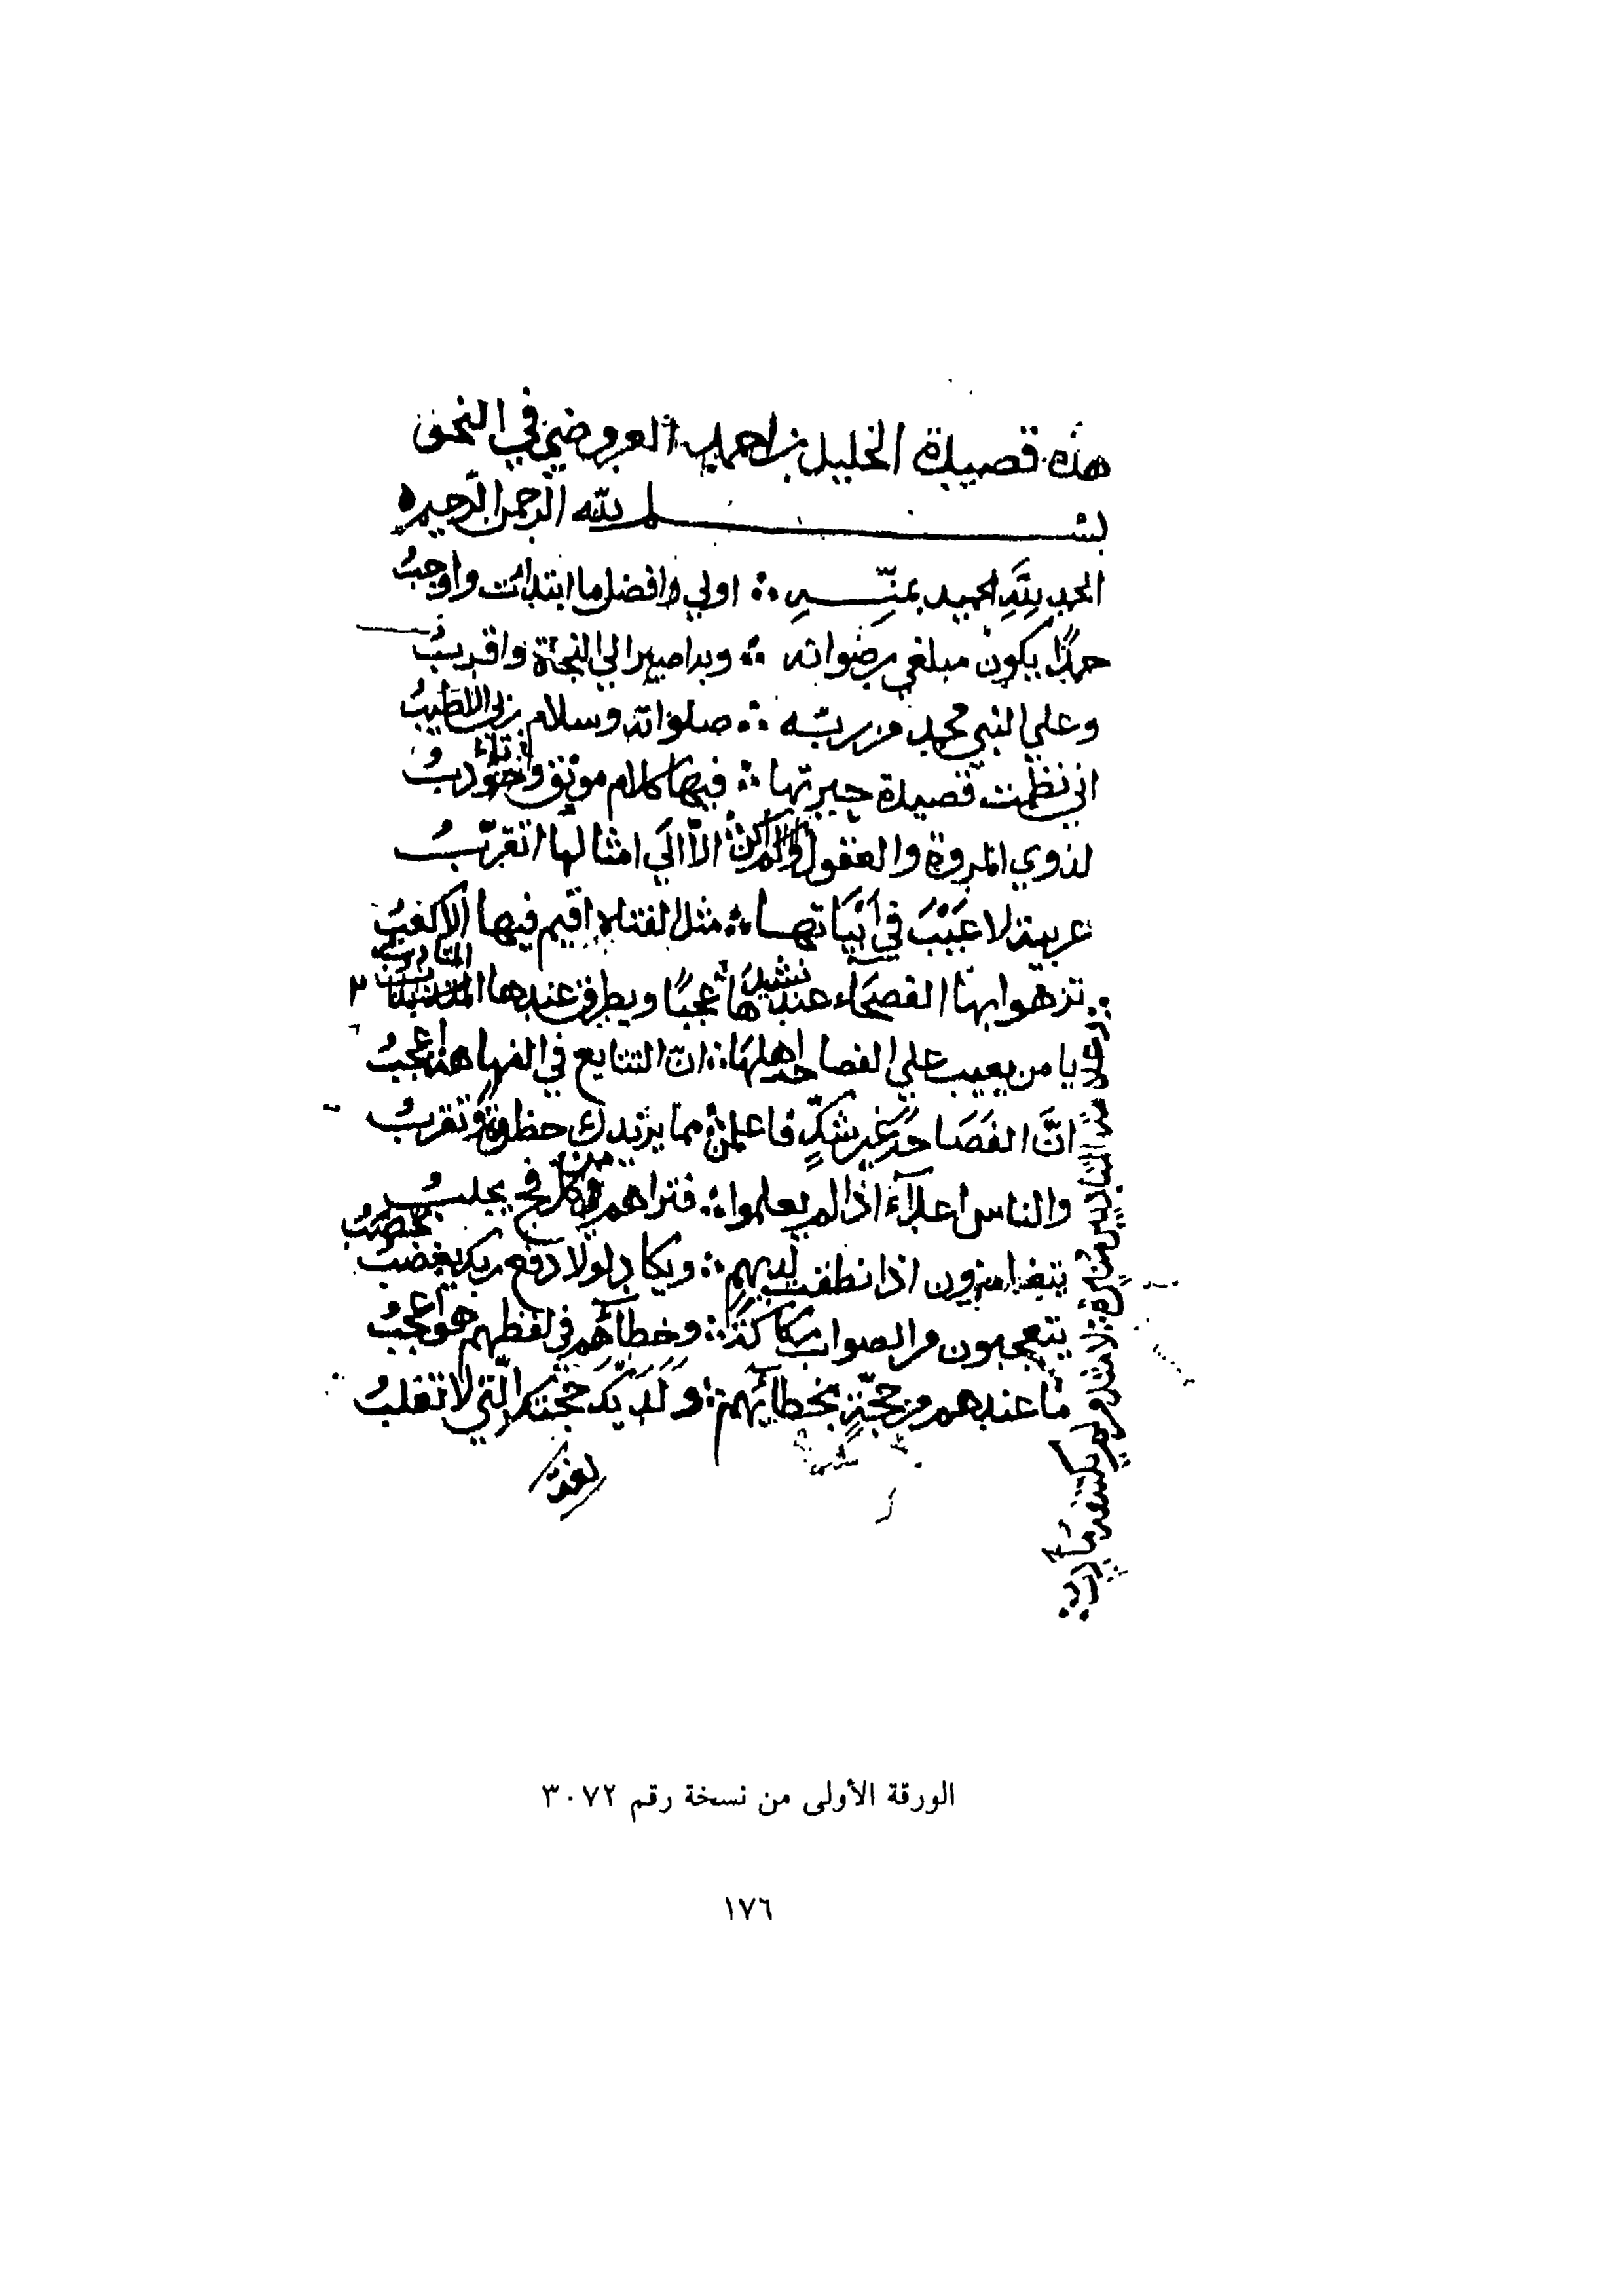 هذه قصيدة الخليل بن احمد العروضي في النحو
بسم الله الرحمن الرحيم
الحمد لله الحميد بمنه ∴ اولي وافضل ما ابتدات واوجب
حمدًا يكون مبلغي رضوانه ∴ وبه اصير الي النجاة واقرب
وعلي النبي محمد من ربه ∴ صلواته وسلام ربي الاطيب
اني نظمت قصيدة حبرتها ∴ فيها كلام مونق وتادب
لذوي المروة والعقول ولم اكن ∴ الا الي امثالها اتقرب
عربية لا عيب في ابياتها ∴ مثل القناة اقيم فيها الاكعب
تزهوا بها الفصحاء عند نشيدها ∴ عجبًا ويطرق عندها المتادب
يا من يعيب علي الفصاحة اهلها ∴ ان التتايع في الفهاهة اعجب
انَّ الفَصَاحَة غير شكٍّ فاعلمن ∴ مما يزيدك حظوة وتقرب
والناس اعداء اذا لم يعلموا ∴ فتراهم من كل فج يجلب
يتغامزون اذا نطقت لديهم ∴ ويكاد لولا دفع ربك يغضب
يحصب
يتعجبون من الصواب ∴ وخطاؤهم في لفظهم هو اعجب
ما عندهم من حجّةٍ بخطائهم ∴ ولَدَيْكَ حجتك الّتي لا تغلب
الورقة الأولى من نسخة رقم ٣٠٧٢
١٧٦